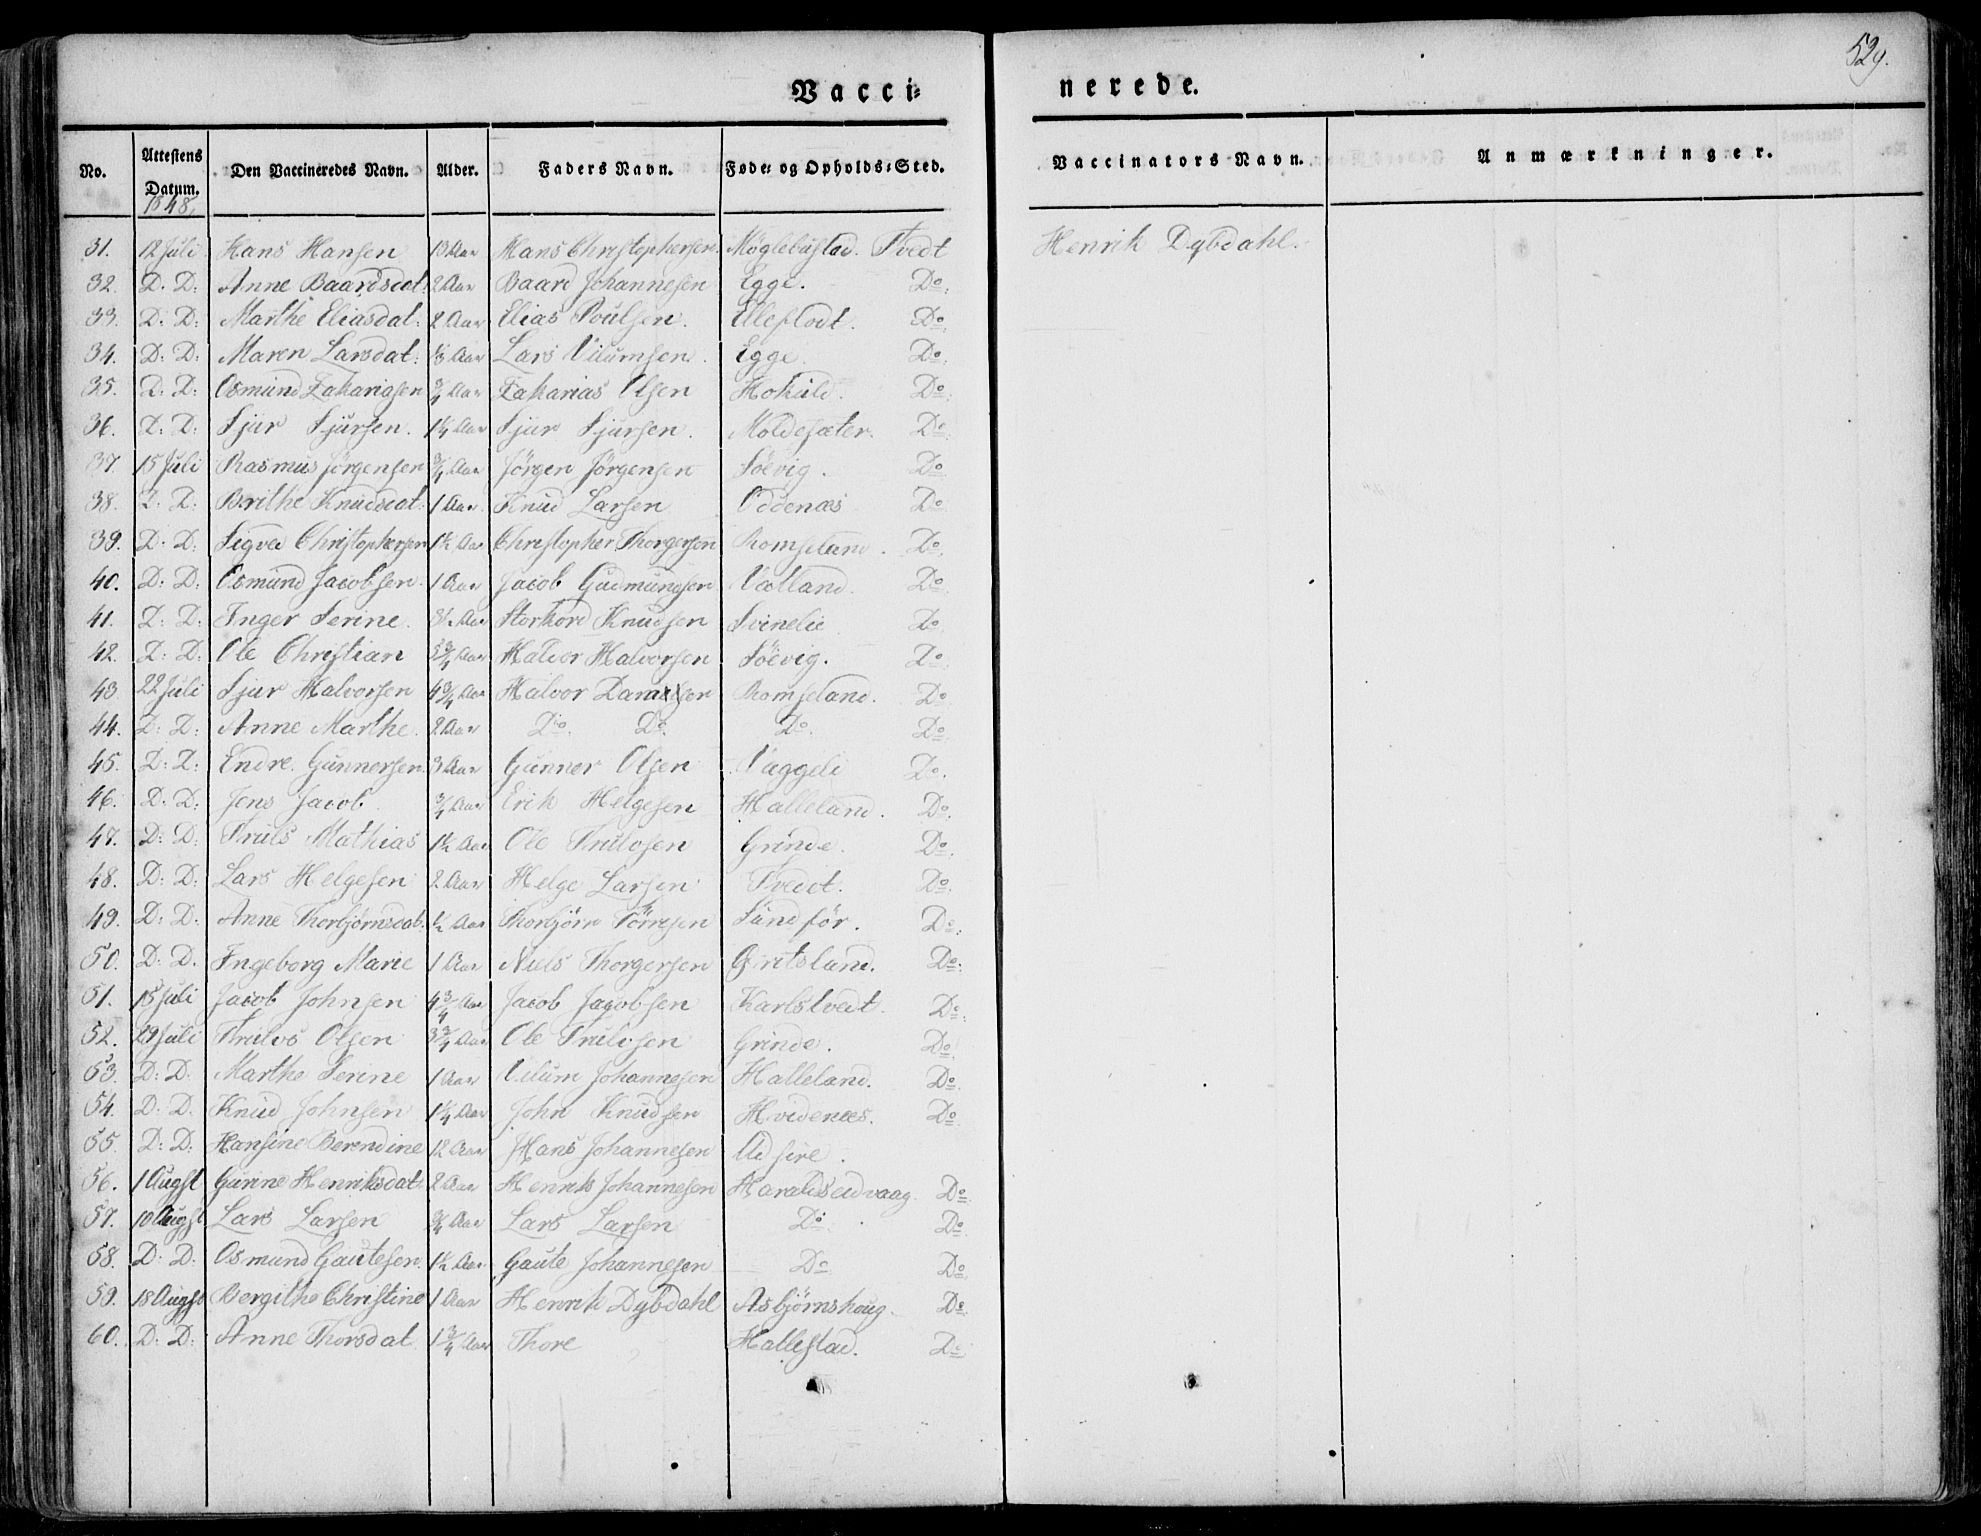 529.
Vacci- nerede.
No. Attestens Datum. Den Vaccineredes Navn. Alder. Faders Navn. Føde- og Opholds-Sted. Vaccinators Navn. Anmærkninger.
1848.
31. 12 Juli Hans Hansen 13 Aar Hans Christophersen Møglebustad. Tvedt Henrik Dybdahl.
32. D. D: Anne Baardsdat: 2 Aar Baard Johannesen Egge. Do.
33. D: D: Marthe Eliasdat: 2 Aar Elias Poulsen. Ulefladt. Do.
34. D: D: Maren Larsdat: Aar Lars Vilumsen. Egge. Do.
35. D: D: Osmund Zakariasen 3/4 Aar Zakarias Olsen Hokuld. Do.
36. D: D: Sjur Sjursen. 1 1/4 Aar Sjur Sjursen. Moldesæter. Do.
37. 15 Juli Rasmus Jörgensen 3/4 Aar Jörgen Jörgensen Söevig. Do
38. D. D: Brithe Knudsdat: 1 Aar Knud Larsen Oddenæs Do
39. D. D: Sigved Christophersen 1 1/2 Aar Christopher Thorgersen Romseland. Do.
40. D: D: Osmund Jacobsen 1 Aar Jacob Gudmundsen Vatland. Do.
41. D: D: Inger Serine. 3 1/2 Aar Storkord Knudsen Svinelie Do
42. D: D: Ole Christian 5 3/4 Aar Halvor Halvorsen Söevig. Do.
43 22 Juli Sjur Halvorsen 4 3/4 Aar Halvor Danielsen Romseland. Do
44. D: D: Anne Marthe. 2 Aar Do. Do. Do. Do.
45. D: D: Endre Gunnersen. 3 Aar Gunner Olsen Vaggeli Do.
46. D. D: Jens Jacob 3/4 Aar Erik Helgesen Halleland. Do.
47. D: D: Truls Mathias 1 1/2 Aar Ole Trulssen Grinde. Do.
48. D: D: Lars Helgesen 2 Aar Helge Larsen Tvedt. Do.
49. D: D. Anne Thorbjörnsdat. 1/2 Aar Thorbjörn Törresen Sundför. Do.
50. D: D. Ingeborg Marie 1 Aar Niels Thorgersen Gritsland. Do.
51. 15 Juli Jacob Johnsen 4 3/4 Aar Jacob Jacobsen Karlstvedt. Do.
52. 29 Juli Truls Olsen 3 3/4 Aar Ole Trulssen Grinde. Do.
53. D: D. Marthe Serine 1 Aar Vilum Johannesen Halleland. Do.
54. D: D. Knud Johnsen 1 1/4 Aar John Knudsen Hvidenæs. Do.
55. D: D. Hansine Berendine 12 Aar Hans Johannesen Udsire.
56. 1 Augst Gurine Henriksdat. 2 Aar Henrik Johannesen Haraldseidvaag. Do.
57. 10 Augst Lars Larsen 3/4 Aar Lars Larsen Do. Do.
58. D. D. Osmund Gautesen. 1 1/2 Aar Gaute Johannesen Do Do.
59. 18 Augst Bergithe Christine 1 Aar Henrik Dybdahl Asbjörnshoug. Do.
60. D: D: Anne Thorsdat 1 3/4 Aar Thore Hallestad. Do.